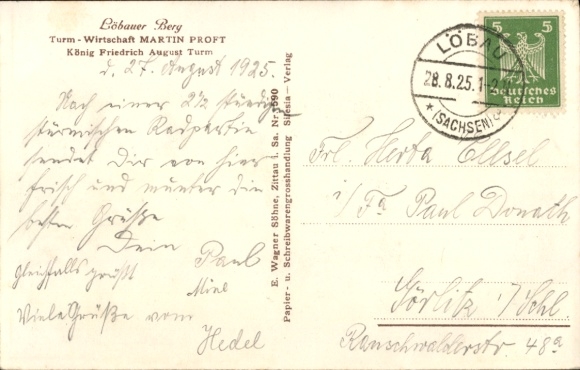 Löbauer Berg
Turm-Wirtschaft MARTIN PROFT
König Friedrich August Turm
d. 27. August 1925.
Nach einer 2½ stündigen
stürmischen Radpartie
sendet Dir von hier
frisch und munter die
besten Grüße
Dein Paul
Gleichfalls grüßt
Viele Grüße vom
Hedel
E. Wagner Söhne, Zittau i. Sa. Nr.
Papier- u. Schreibwarengrosshandlung Silesia-Verlag
5 5
Deutsches
Reich
LÖBAU
28.8.25.
(SACHSEN)
Frl. Herta
i/Fa Paul Donath
Görlitz i/Schl.
Rauschwalderstr. 48a